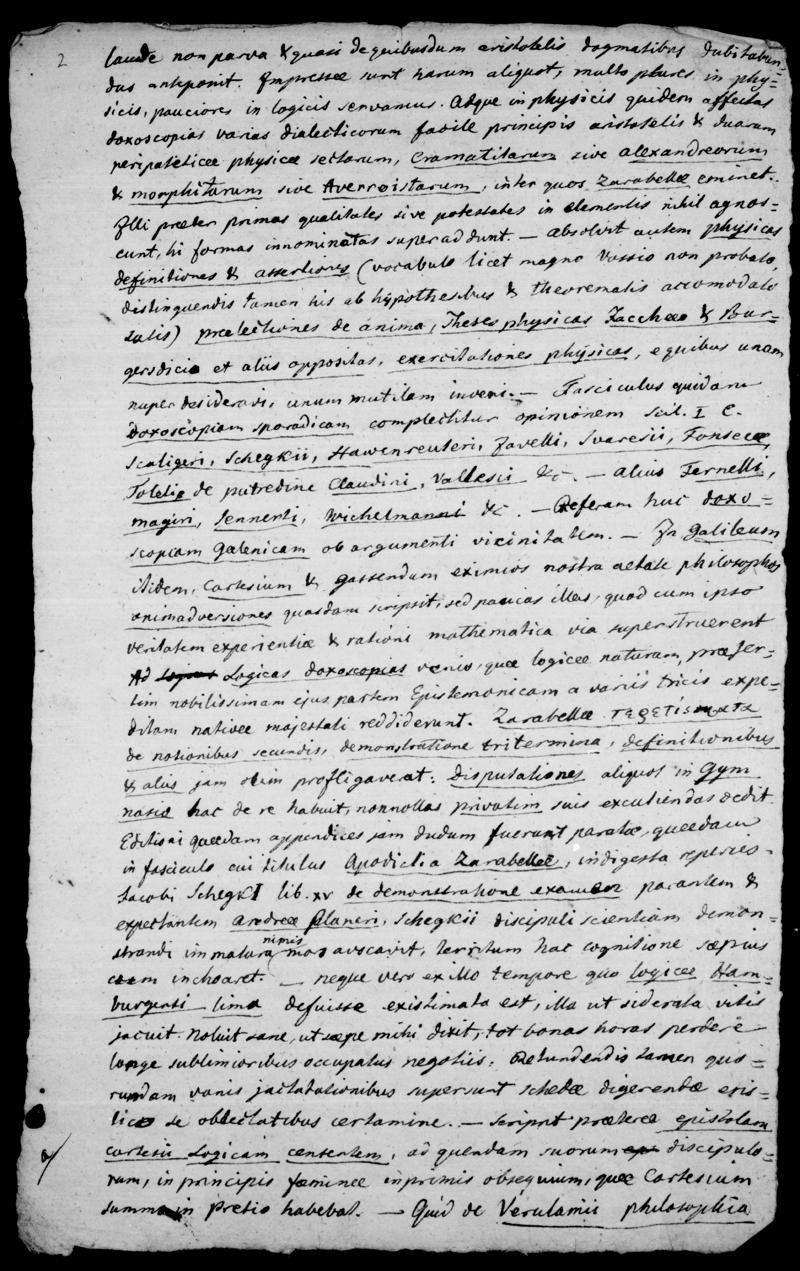 2
laude non parva & quasi de quibusdam aristotelis dogmatibus dubitabun-
dus anteponit. Impressae sunt harum aliquot, multo plures in phy-
sicis, pauciores in logicis servamus. Adque in physicis quidem affectas
doxoscopias varias dialecticorum facile principis aristotelis & duarum
peripateticae physicae sectarum, Cramatitarum sive alexandreorum
& morphitarum sive Averroistarum, inter quos Zarabellae eminet.
Illi praeter primas qualitates sive potestates in elementis nihil agnos-
cunt, hi formas innominatas superaddunt. — absolvit autem physicas
definitiones & assertiones (vocabulo licet magno Vossio non probato,
distinguendis tamen his ab hypothesibus & theorematis accomodato
satis) praelectiones de anima, Theses physicas Zacchaeo & Bur-
gersdicio et aliis oppositas, exercitationes physicas, e quibus unam
nuper desideravi, unum mutilam inveni. — Fasciculus quidam
Doxoscopiam sporadicam complectitur opinionem scil. I C.
Scaligeri, Schegkii, Hawenreuteri, Javelli, Svaresii, Fonsecae,
Toletie de putredine Claudini, Vallesii &c. — alius Fernelli,
magiri, Sennerti, Wichelmanni &c. — Referam huc doxo-
scopiam Galenicam ob argumenti vicinitatem. — In Galileum
itidem, Cartesium & gassendum eximios nostra aetate philosophos
animadversiones quasdam scripsit, sed paucas illas, quod cum ipso
veritatem experientiae & rationi mathematica via superstruerent
Ad Logicas doxoscopias venio, quae logicae naturam, praeser-
tim nobilissimam ejus partem Epistemonicam a variis tricis expe-
ditam nativae majestati reddiderunt. Zarabellae
de notionibus secundis, demonstratione tritermina, definitionibus
& aliis jam olim profligaverat: disputationes aliquot in Gym
nasio hac de re habuit, nonnollas privatim suis excutiendas dedit.
Editioni quaedam appendices jam dudum fuerunt paratae, quaedam
in fasciculo cui titulus Apodictia Zarabellae, indigesta reperies.
Jacobi SchegkI lib. XV de demonstratione examen parantem &
expectantem andreae Planeri, Schegkii discipuli scientiam demon-
strandi immatura nimis mors avocavit, territum hac cognitione saepius
cum inchoaret. — neque vero ex illo tempore quo logicae Ham-
burgensi lima defuisse existimata est, illa ut siderata vitis
jacuit. Noluit sane, ut saepe mihi dixit, tot bonas horas perdere
longe sublimioribus occupatus negotiis: Retundendis tamen quo-
rundam vanis jactatationibus supersunt schedae digerendae epis-
lico se oblectatibus certamine. — Scripsit praeterea epistolam
cartesii Logicam censentem, ad quendam suorum discipulo-
rum, in principis faeminae inprimis obsequium, quae Cartesium
summo in pretio habebat. — Quid de Verulamii philosophia